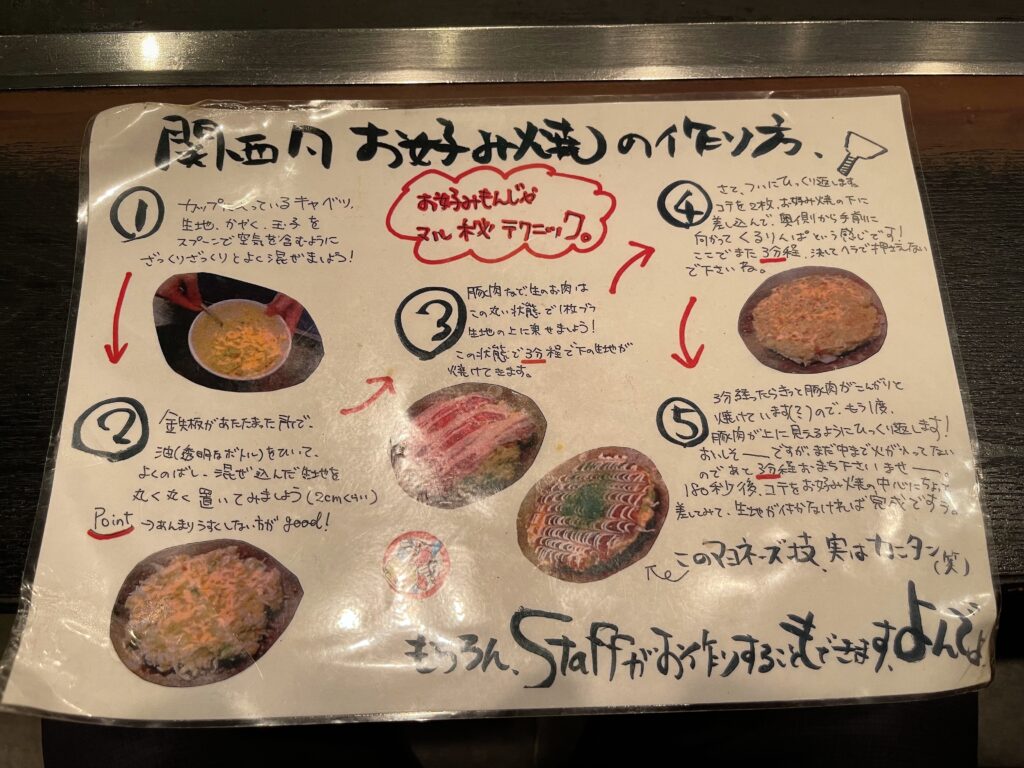 関西風 お好み焼の作り方、
お好みもんじゃ
マル秘テクニック。
①
カップに入っているキャベツ、
生地、かやく、玉子を
スプーンで空気を含むように
ざっくりざっくりとよく混ぜましょう!
②
鉄板があたたまった所で、
油(透明なボトル)をひいて、
よくのばし、混ぜ込んだ生地を
丸く丸く置いてみましょう(2cmくらい)
Point →あんまりうすくしない方がgood!
③
豚肉など、生のお肉は
この丸い状態で1枚づつ
生地の上に乗せましょう!
この状態で3分程で下の生地が
焼けてきます。
④
さて、ついにひっくり返します。
コテを2枚、お好み焼の下に
差し込んで、奥側から手前に
向かってくるりんぱという感じです!
ここでまた3分程、決してヘラで押さえない
で下さいね。
⑤
3分経ったらきっと豚肉がこんがりと
焼けています(?)ので、もう1度、
豚肉が上に見えるようにひっくり返します!
おいしそ〜ですが、まだ中まで火が入ってない
のであと3分程おまち下さいませ〜。
180秒後、コテをお好み焼の中心にちょっと
差してみて、生地が付かなければ完成ですっ。
このマヨネーズ技、実はカンタン(笑)
もちろん、Staffがお作りすることもできます、よんでよ